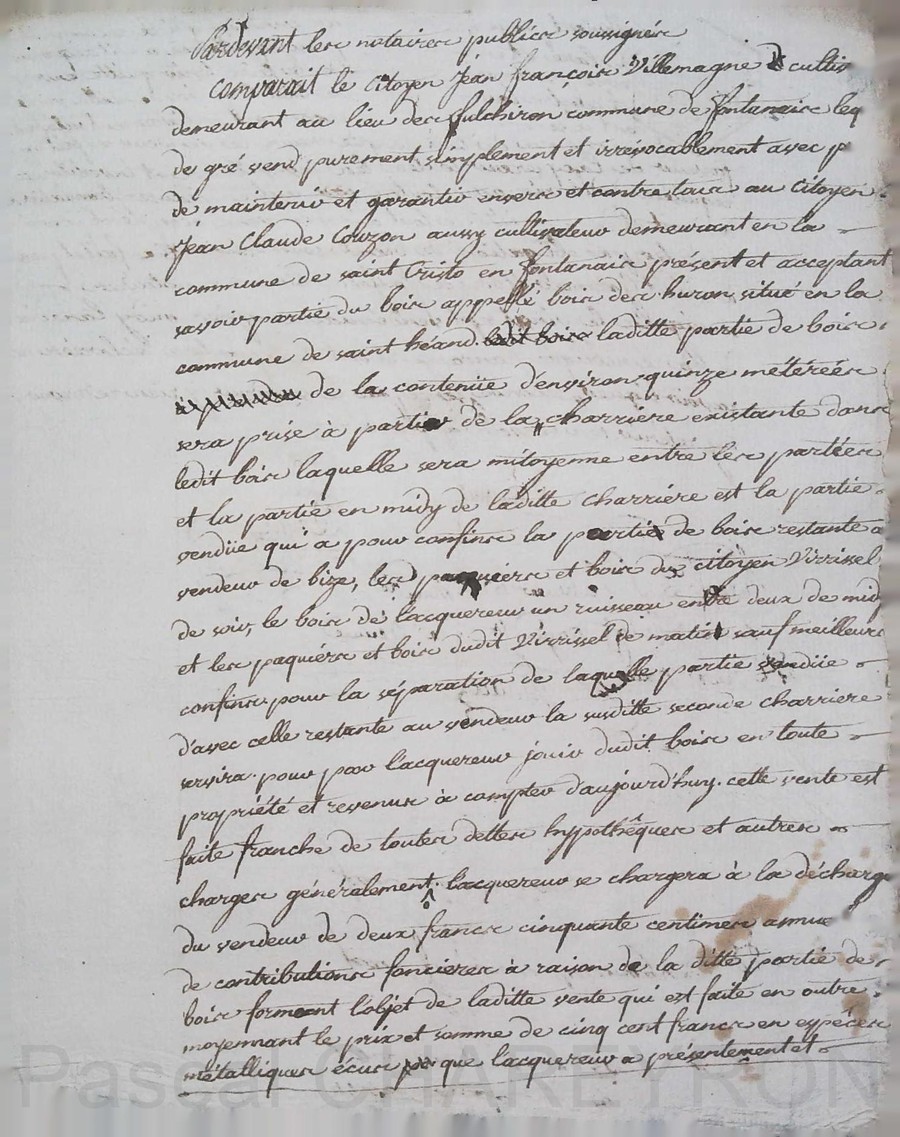 Pardevant les notaires publics soussignés
comparait le citoyen Jean françois Villemagne cultiv
demeurant au lieu des fulchiron commune de fontanais leq
de gré vend purement simplement et irrévocablement avec p
de maintenir et garantir envers et contre tous au citoyen
Jean Claude Couzon aussy cultivateur demeurant en la
commune de saint Cristo en fontanais présent et acceptant
savoir partie du bois appellé bois des huron situé en la
commune de saint héand. ledit bois laditte partie de bois
de la contenüe d'environ quinze méterées
sera prise à partir de la charriere existante dans
ledit bois laquelle sera mitoyenne entre les partées
et la partie en midy de laditte charriere est la partie
vendüe qui a pour confins la partie de bois restante a
vendeur de bize, les paquiers et bois du citoyen Virrissel
de soir, le bois de l'acquereur un ruisseau entre deux de mid
et les paquiers et bois dudit Virrissel de matin sauf meilleurs
confins, pour la séparation de laquelle partie vendüe
d'avec celle restante au vendeur la susditte seconde charriere
servira. pour par l'acquereur jouir dudit bois en toute
propriété et revenus à compter d'aujourd'huy. cette vente est
faite franche de toutes dettes hypothêques et autres
charges généralement. l'acquereur se chargera à la décharge
du vendeur de deux francs cinquante centimes annue
de contributions foncieres à raison de la ditte partie de
bois formant l'objet de laditte vente qui est faite en outre
moyennant le prix et somme de cinq cent francs en espéces
métalliques écus que l'acquereur a présentement et
Pascal CHAREYRON